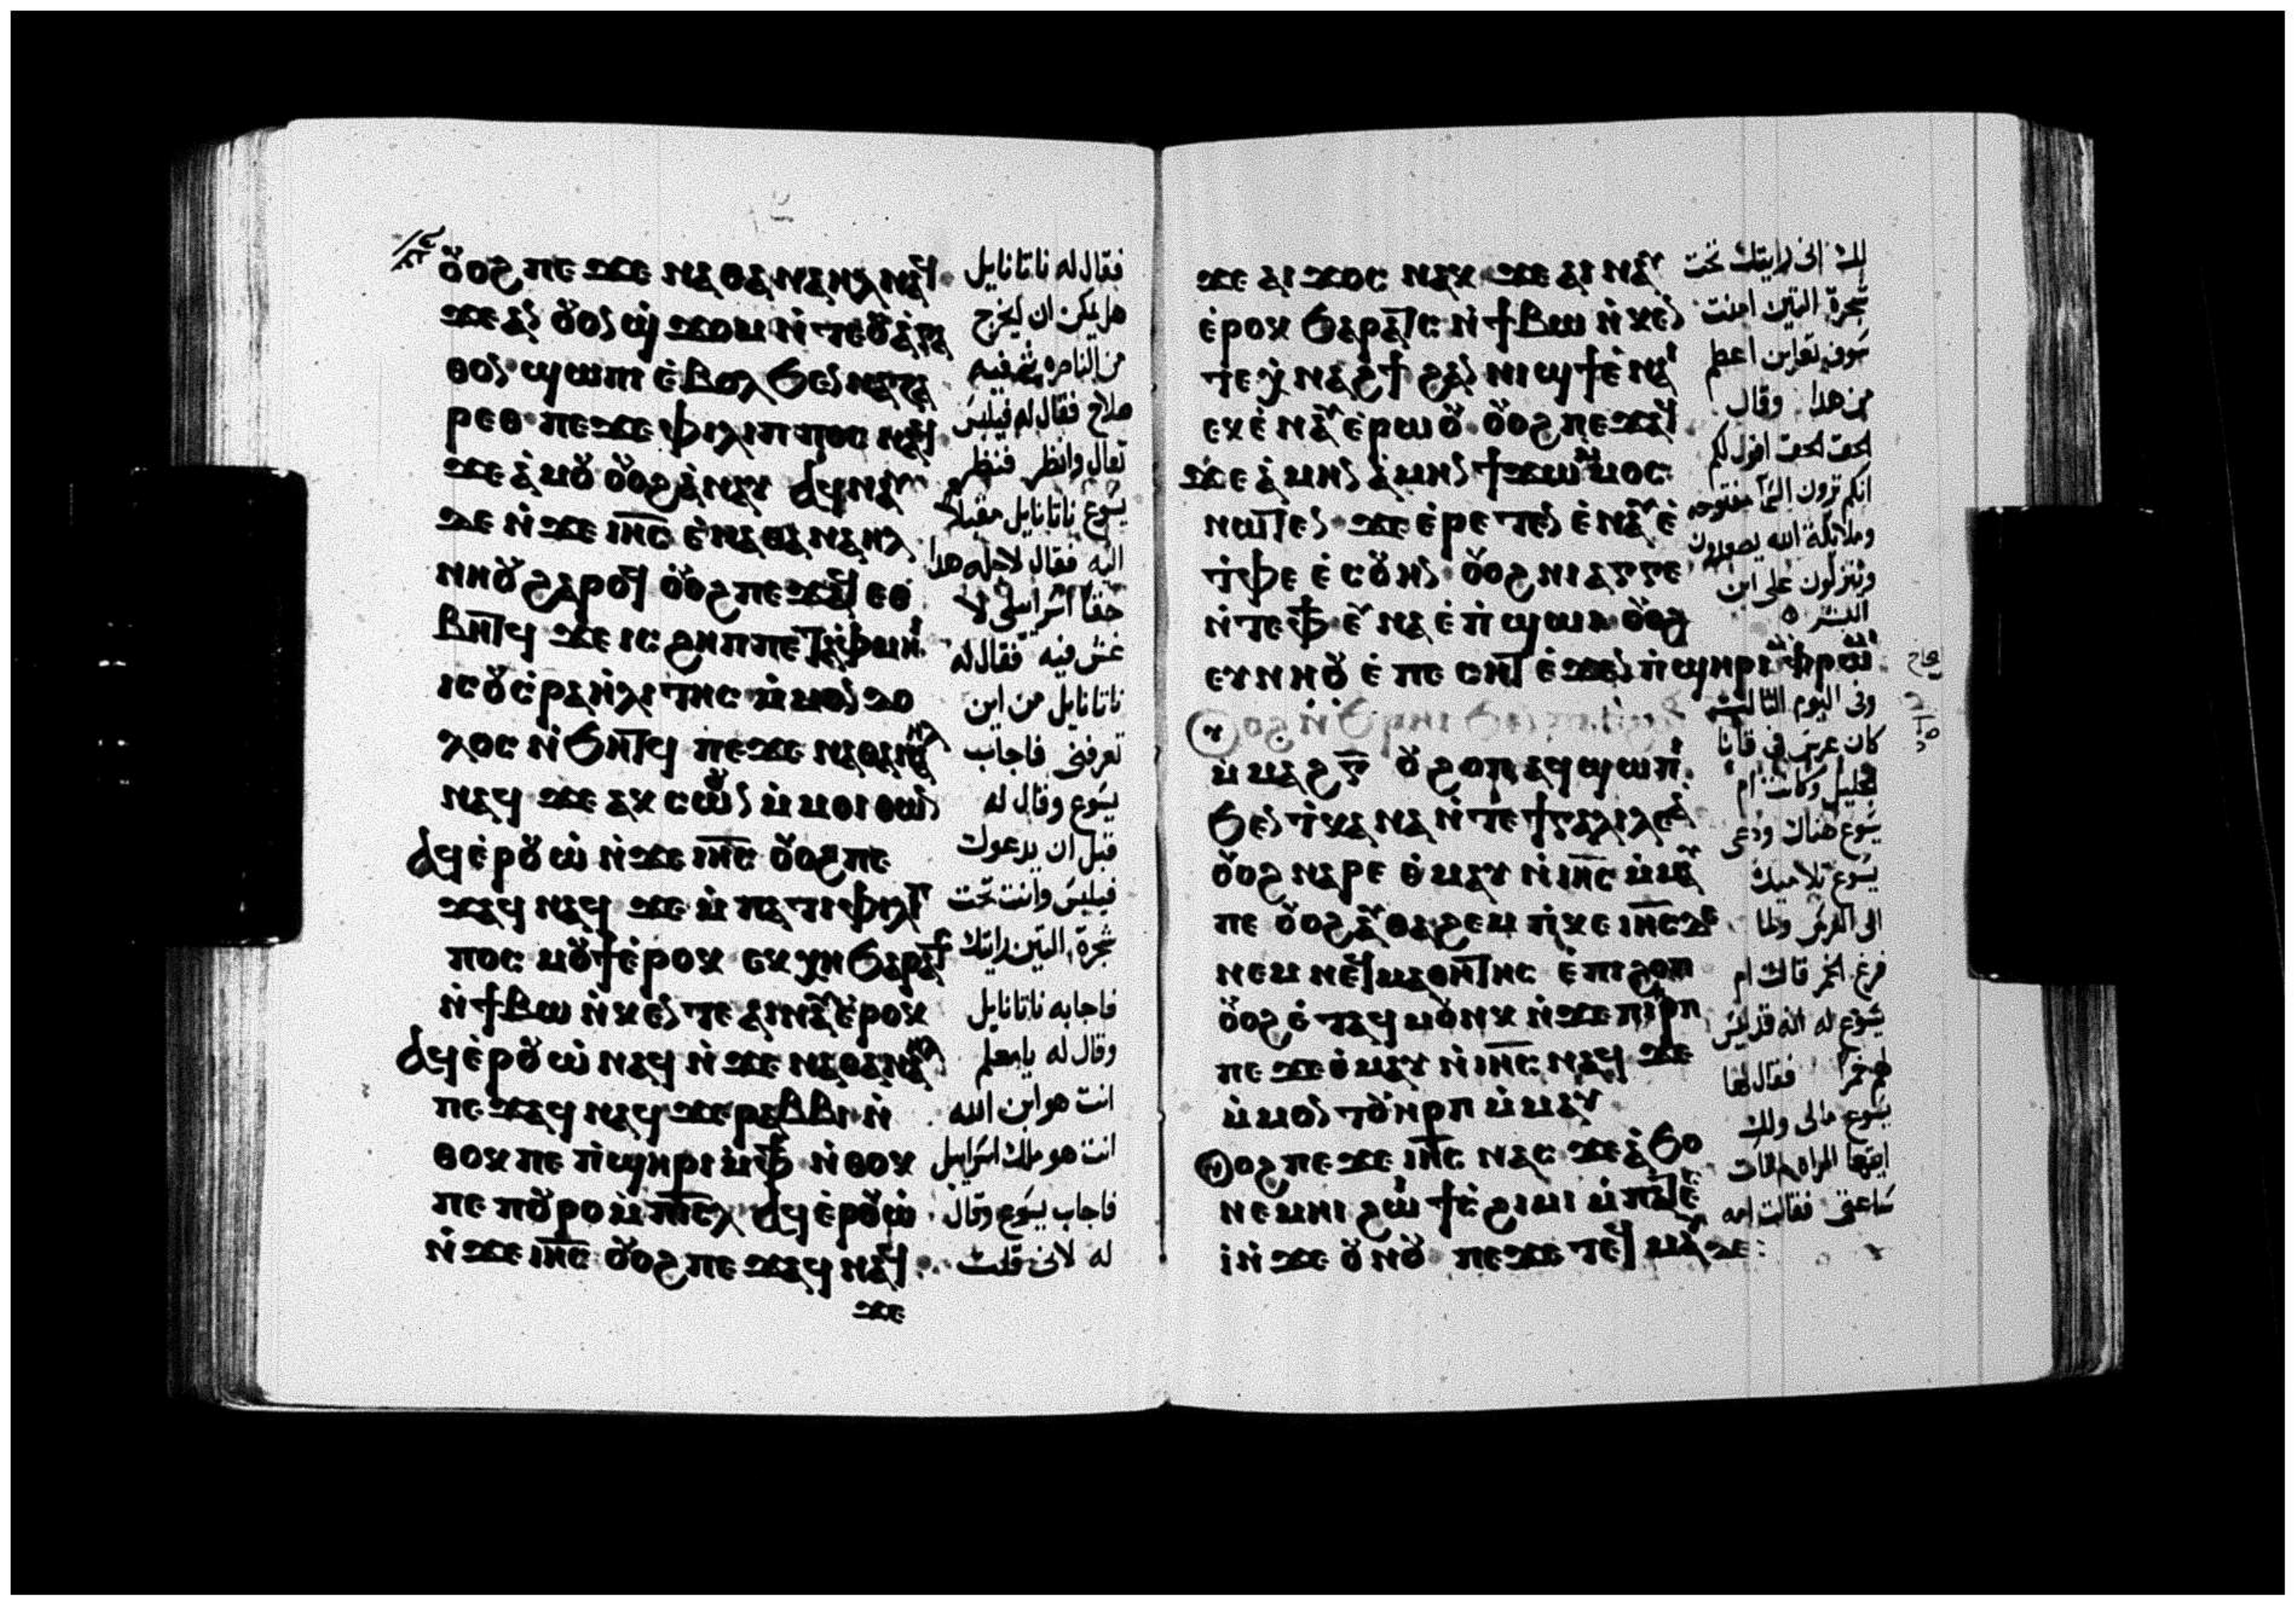 ⲟⲩⲟϩ ⲡⲉϫⲉ ⲛⲁⲑⲁⲛⲁⲏⲗ ⲛⲁϥ
ϫⲉ ⲁⲛ ⲟⲩⲟⲛ ϣϫⲟⲙ ⲛ̀ⲧⲉⲟⲩⲁ̀ⲅⲁ
ⲑⲟⲛ ϣⲱⲡⲓ ⲉ̀ⲃⲟⲗ ϧⲉⲛ ⲛⲁⲍⲁ
ⲣⲉⲑ ⲡⲉϫⲉ ⲫⲓⲗⲓⲡⲡⲟⲥ ⲛⲁϥ
ϫⲉ ⲁ̀ⲙⲟⲩ ⲟⲩⲟϩ ⲁ̀ⲛⲁⲩ ⲁϥⲛⲁⲩ
ⲇⲉ ⲛ̀ϫⲉ ⲓⲏ̅ⲥ̅ ⲉ̀ⲛⲁⲑⲁⲛⲁⲏⲗ
ⲛⲏⲟⲩ ϩⲁⲣⲟϥ ⲟⲩⲟϩ ⲡⲉϫⲁϥ ⲉⲑ
ⲃⲏⲧϥ ϫⲉ ⲓⲥ ϩⲏⲡⲡⲉ ⲧⲁ̀ⲫⲙⲏⲓ
ⲓⲥ ⲟⲩⲓ̀ⲥⲣⲁⲏ̀ⲗⲓⲧⲏⲥ ⲙ̀ⲙⲟⲛ ⲇⲟ
ⲗⲟⲥ ⲛ̀ϧⲏⲧϥ ⲡⲉϫⲉ ⲛⲁⲑⲁⲛⲁⲏⲗ
ⲛⲁϥ ϫⲉ ⲁⲕ ⲥⲱⲟⲩⲛ ⲙ̀ⲙⲟⲓ ⲑⲱⲛ
ⲁϥⲉ̀ⲣⲟⲩⲱ̀ ⲛ̀ϫⲉ ⲓⲏ̅ⲥ̅ ⲟⲩⲟϩ ⲡⲉ
ϫⲁϥ ⲛⲁϥ ϫⲉ ⲙ̀ⲡⲁⲧⲉ ⲫⲓⲗⲓⲡ
ⲡⲟⲥ ⲙⲟⲩϯ ⲉ̀ⲣⲟⲕ ⲉⲕⲭⲏ ϧⲁⲣⲁⲧⲥ
ⲛ̀ϯⲃⲱ ⲛ̀ⲕⲉⲛⲧⲉ ⲁⲓⲛⲁⲩ ⲉ̀ⲣⲟⲕ
ⲁϥⲉ̀ⲣⲟⲩⲱ̀ ⲛⲁϥ ⲛ̀ϫⲉ ⲛⲁⲑⲁⲛⲁⲏⲗ
ⲡⲉϫⲁϥ ⲛⲁϥ ϫⲉ ⲣⲁⲃⲃⲓ ⲛ̀
ⲑⲟⲕ ⲡⲉ ⲡ̀ϣⲏⲣⲓ ⲙ̀ⲫϯ ⲛ̀ⲑⲟⲕ
ⲡⲉ ⲡⲟⲩⲣⲟ ⲙ̀ⲡⲓⲥ̅ⲗ̅ ⲁϥⲉ̀ⲣⲟⲩⲱ̀
ⲛ̀ϫⲉ ⲓⲏ̅ⲥ̅ ⲟⲩⲟϩ ⲡⲉϫⲁϥ ⲛⲁϥ
ϫⲉ
فقال له ناتانايل
هل يمكن ان يخرج
من الناصره شى فيه
صلاح فقال له فيلبس
تعال وانظر فنظر
يسوع ناتانايل مقبلا
اليه فقال لاجله هدا
حقا اسراييلى لا
غش فيه فقال له
ناتانايل من اين
تعرفنى فاجاب
يسوع وقال له
قبل ان يدعوك
فيلبس وانت تحت
شجرة التين رايتك
فاجابه ناتانايل
وقال له يا معلم
انت هو ابن الله
انت هو ملك اسراييل
فاجاب يسوع وقال
له لانى قلت
ϫⲉ ⲁⲓϫⲟⲥ ⲛⲁⲕ ϫⲉ ⲁⲓⲛⲁⲩ
ⲉ̀ⲣⲟⲕ ϧⲁⲣⲁⲧⲥ ⲛ̀ϯⲃⲱ ⲛ̀ⲕⲉⲛ
ⲧⲉ ⲭⲛⲁϩϯ ϩⲁⲛⲛⲓϣϯ ⲉ̀ⲛⲁⲓ
ⲉⲕⲉ̀ⲛⲁⲩ ⲉ̀ⲣⲱⲟⲩ ⲟⲩⲟϩ ⲡⲉϫⲁϥ
ϫⲉ ⲁ̀ⲙⲏⲛ ⲁ̀ⲙⲏⲛ ϯϫⲱ ⲙ̀ⲙⲟⲥ
ⲛⲱⲧⲉⲛ ϫⲉ ⲉ̀ⲣⲉⲧⲉⲛⲉ̀ⲛⲁⲩ ⲉ̀
ⲧ̀ⲫⲉ ⲉ̀ⲥⲟⲩⲏⲛ ⲟⲩⲟϩ ⲛⲓⲁⲅⲅⲉ
ⲛ̀ⲧⲉⲫϯ ⲉⲩⲛⲁ ⲉ̀ⲡ̀ϣⲱⲓ ⲟⲩⲟϩ
ⲉⲩⲛⲏⲟⲩ ⲉ̀ⲡⲉⲥⲏⲧ ⲉ̀ϫⲉⲛ ⲡ̀ϣⲏⲣⲓ ⲙ̀ⲫⲣⲱⲙⲓ
ⲙ̀ⲙⲁϩⲅ̅ ⲟⲩϩⲟⲡ ⲁϥϣⲱⲡⲓ
ϧⲉⲛ ⲧ̀ⲕⲁⲛⲁ ⲛ̀ⲧⲉ ϯⲅⲁⲗⲓⲗⲉⲁ
ⲟⲩⲟϩ ⲛⲁⲣⲉ ⲑ̀ⲙⲁⲩ ⲛ̀ⲓⲏ̅ⲥ̅ ⲙ̀ⲙⲁⲩ
ⲡⲉ ⲟⲩⲟϩ ⲁⲩⲑⲁϩⲉⲙ ⲡ̀ⲕⲉ ⲓⲏ̅ⲥ̅ ⲇⲉ
ⲛⲉⲙ ⲛⲉϥⲙⲁⲑⲏⲧⲏⲥ ⲉ̀ⲡⲓϩⲟⲡ
ⲟⲩⲟϩ ⲉ̀ⲧⲁϥⲙⲟⲩⲛⲕ ⲛ̀ϫⲉ ⲡⲓⲏⲣⲡ
ⲡⲉϫⲉ ⲑ̀ⲙⲁⲩ ⲛ̀ⲓⲏ̅ⲥ̅ ⲛⲁϥ ϫⲉ
ⲙ̀ⲙⲟⲛ ⲧⲟⲩⲏⲣⲡ ⲙ̀ⲙⲁⲩ
ⲟⲩⲟϩ ⲡⲉϫⲉ ⲓⲏ̅ⲥ̅ ⲛⲁⲥ ϫⲉ ⲁ̀ϧⲟ
ⲛⲉⲙⲏⲓ ϩⲱⲓ ϯⲥ̀ϩⲓⲙⲓ ⲙ̀ⲡⲁⲧⲉⲥ̀
ⲓ̀ ⲛ̀ϫⲉ ⲟⲩⲛⲟⲩ ⲡⲉϫⲉ ⲧⲉϥⲙⲁⲩ ⲇⲉ
لك انى رايتك تحت
شجرة التين امنت
سوف تعاين اعظم
من هدا وقال
الحق الحق اقول لكم
انكم ترون السما مفتوحه
وملايكة الله يصعدون
وينزلون على ابن
البشر
وفى اليوم الثالث
كان عرس فى قانا
الجليل وكانت ام
يسوع هناك ودعى
يسوع وتلاميذه
الى العرس ولما
فرغ الخمر قالت ام
يسوع له انه قد ليس
لهم خمرا فقال لها
يسوع مالى ولك
ايتها المراه لم تات
ساعتى فقالت امه